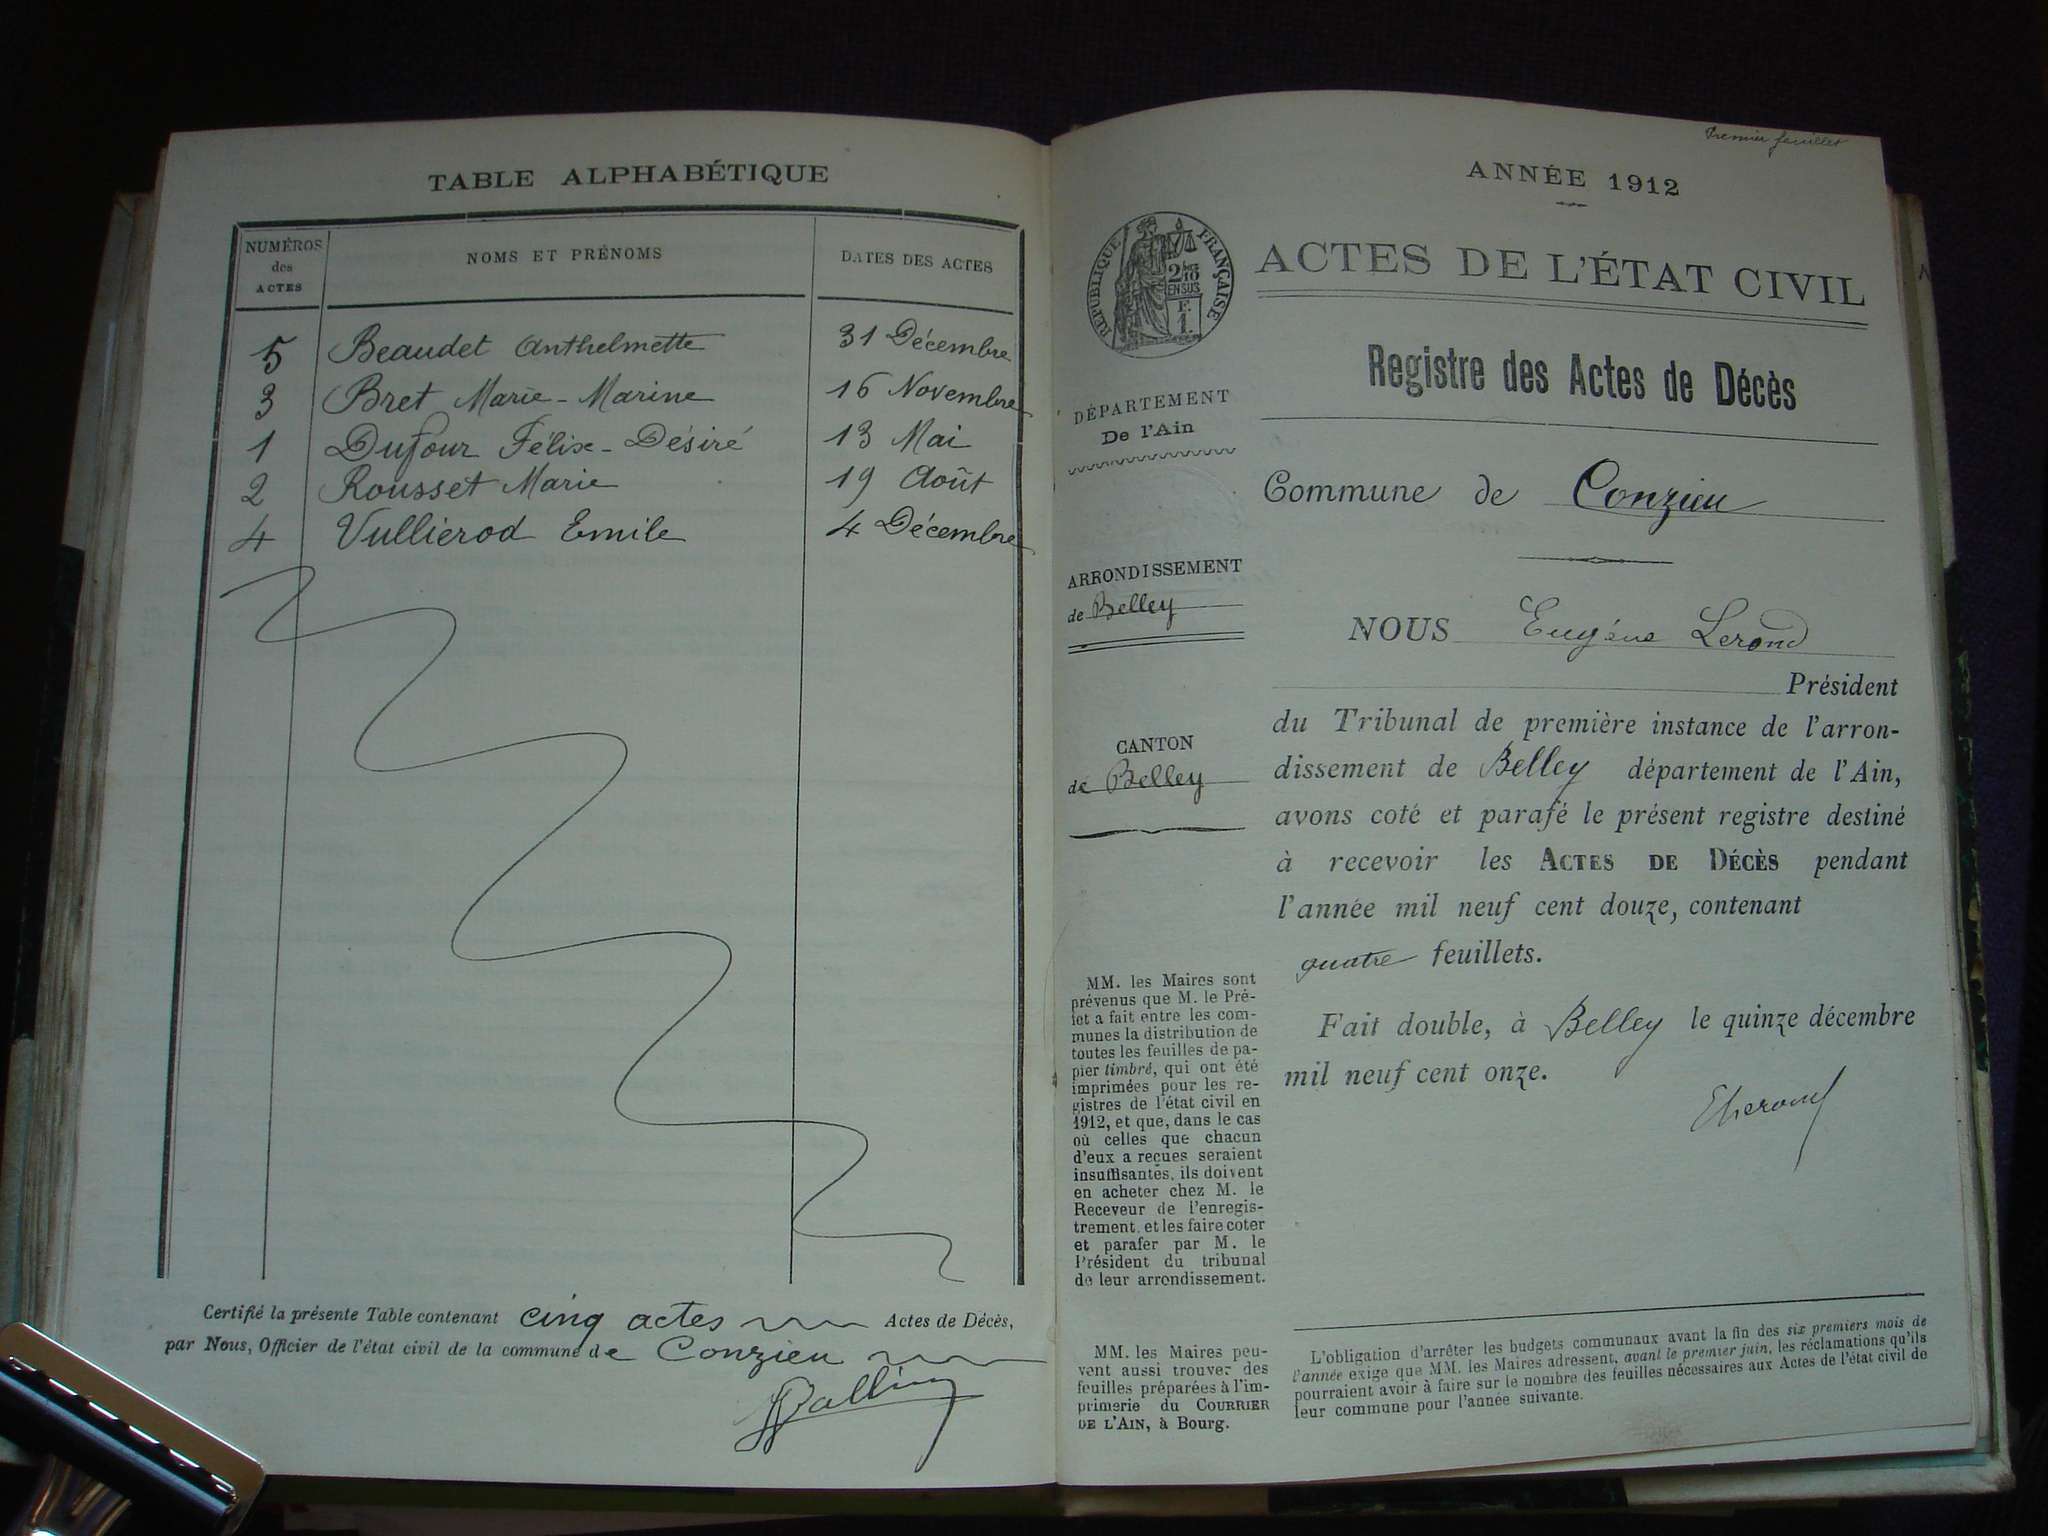 TABLE ALPHABÉTIQUE
NUMÉROS
des
ACTES
NOMS ET PRÉNOMS
DATES DES ACTES
5 Beaudet Anthelmette 31 Décembre
3 Bret Marie-Marine 16 Novembre
1 Dufour Félix-Désiré 13 Mai
2 Rousset Marie 19 Août
4 Vullierod Emile 4 Décembre
Certifié la présente Table contenant cinq actes Actes de Décès,
par Nous, Officier de l'état civil de la commune de Conzieu
Premier feuillet
ANNÉE 1912
RÉPUBLIQUE FRANÇAISE
ACTES DE L'ÉTAT CIVIL
Registre des Actes de Décès
DÉPARTEMENT
De l'Ain
Commune de Conzieu
ARRONDISSEMENT
de Belley
CANTON
de Belley
NOUS Eugène Lerond
Président
du Tribunal de première instance de l'arron-
dissement de Belley département de l'Ain,
avons coté et parafé le présent registre destiné
à recevoir les ACTES DE DÉCÈS pendant
l'année mil neuf cent douze, contenant
quatre feuillets.
Fait double, à Belley le quinze décembre
mil neuf cent onze.
MM. les Maires sont
prévenus que M. le Pré-
fet a fait entre les com-
munes la distribution de
toutes les feuilles de pa-
pier timbré, qui ont été
imprimées pour les re-
gistres de l'état civil en
1912, et que, dans le cas
où celles que chacun
d'eux a reçues seraient
insuffisantes, ils doivent
en acheter chez M. le
Receveur de l'enregis-
trement, et les faire coter
et parafer par M. le
Président du tribunal
de leur arrondissement.
MM. les Maires peu-
vent aussi trouver des
feuilles préparées à l'im-
primerie du COURRIER
DE L'AIN, à Bourg.
L'obligation d'arrêter les budgets communaux avant la fin des six premiers mois de
l'année exige que MM. les Maires adressent, avant le premier juin, les réclamations qu'ils
pourraient avoir à faire sur le nombre des feuilles nécessaires aux Actes de l'état civil de
leur commune pour l'année suivante.